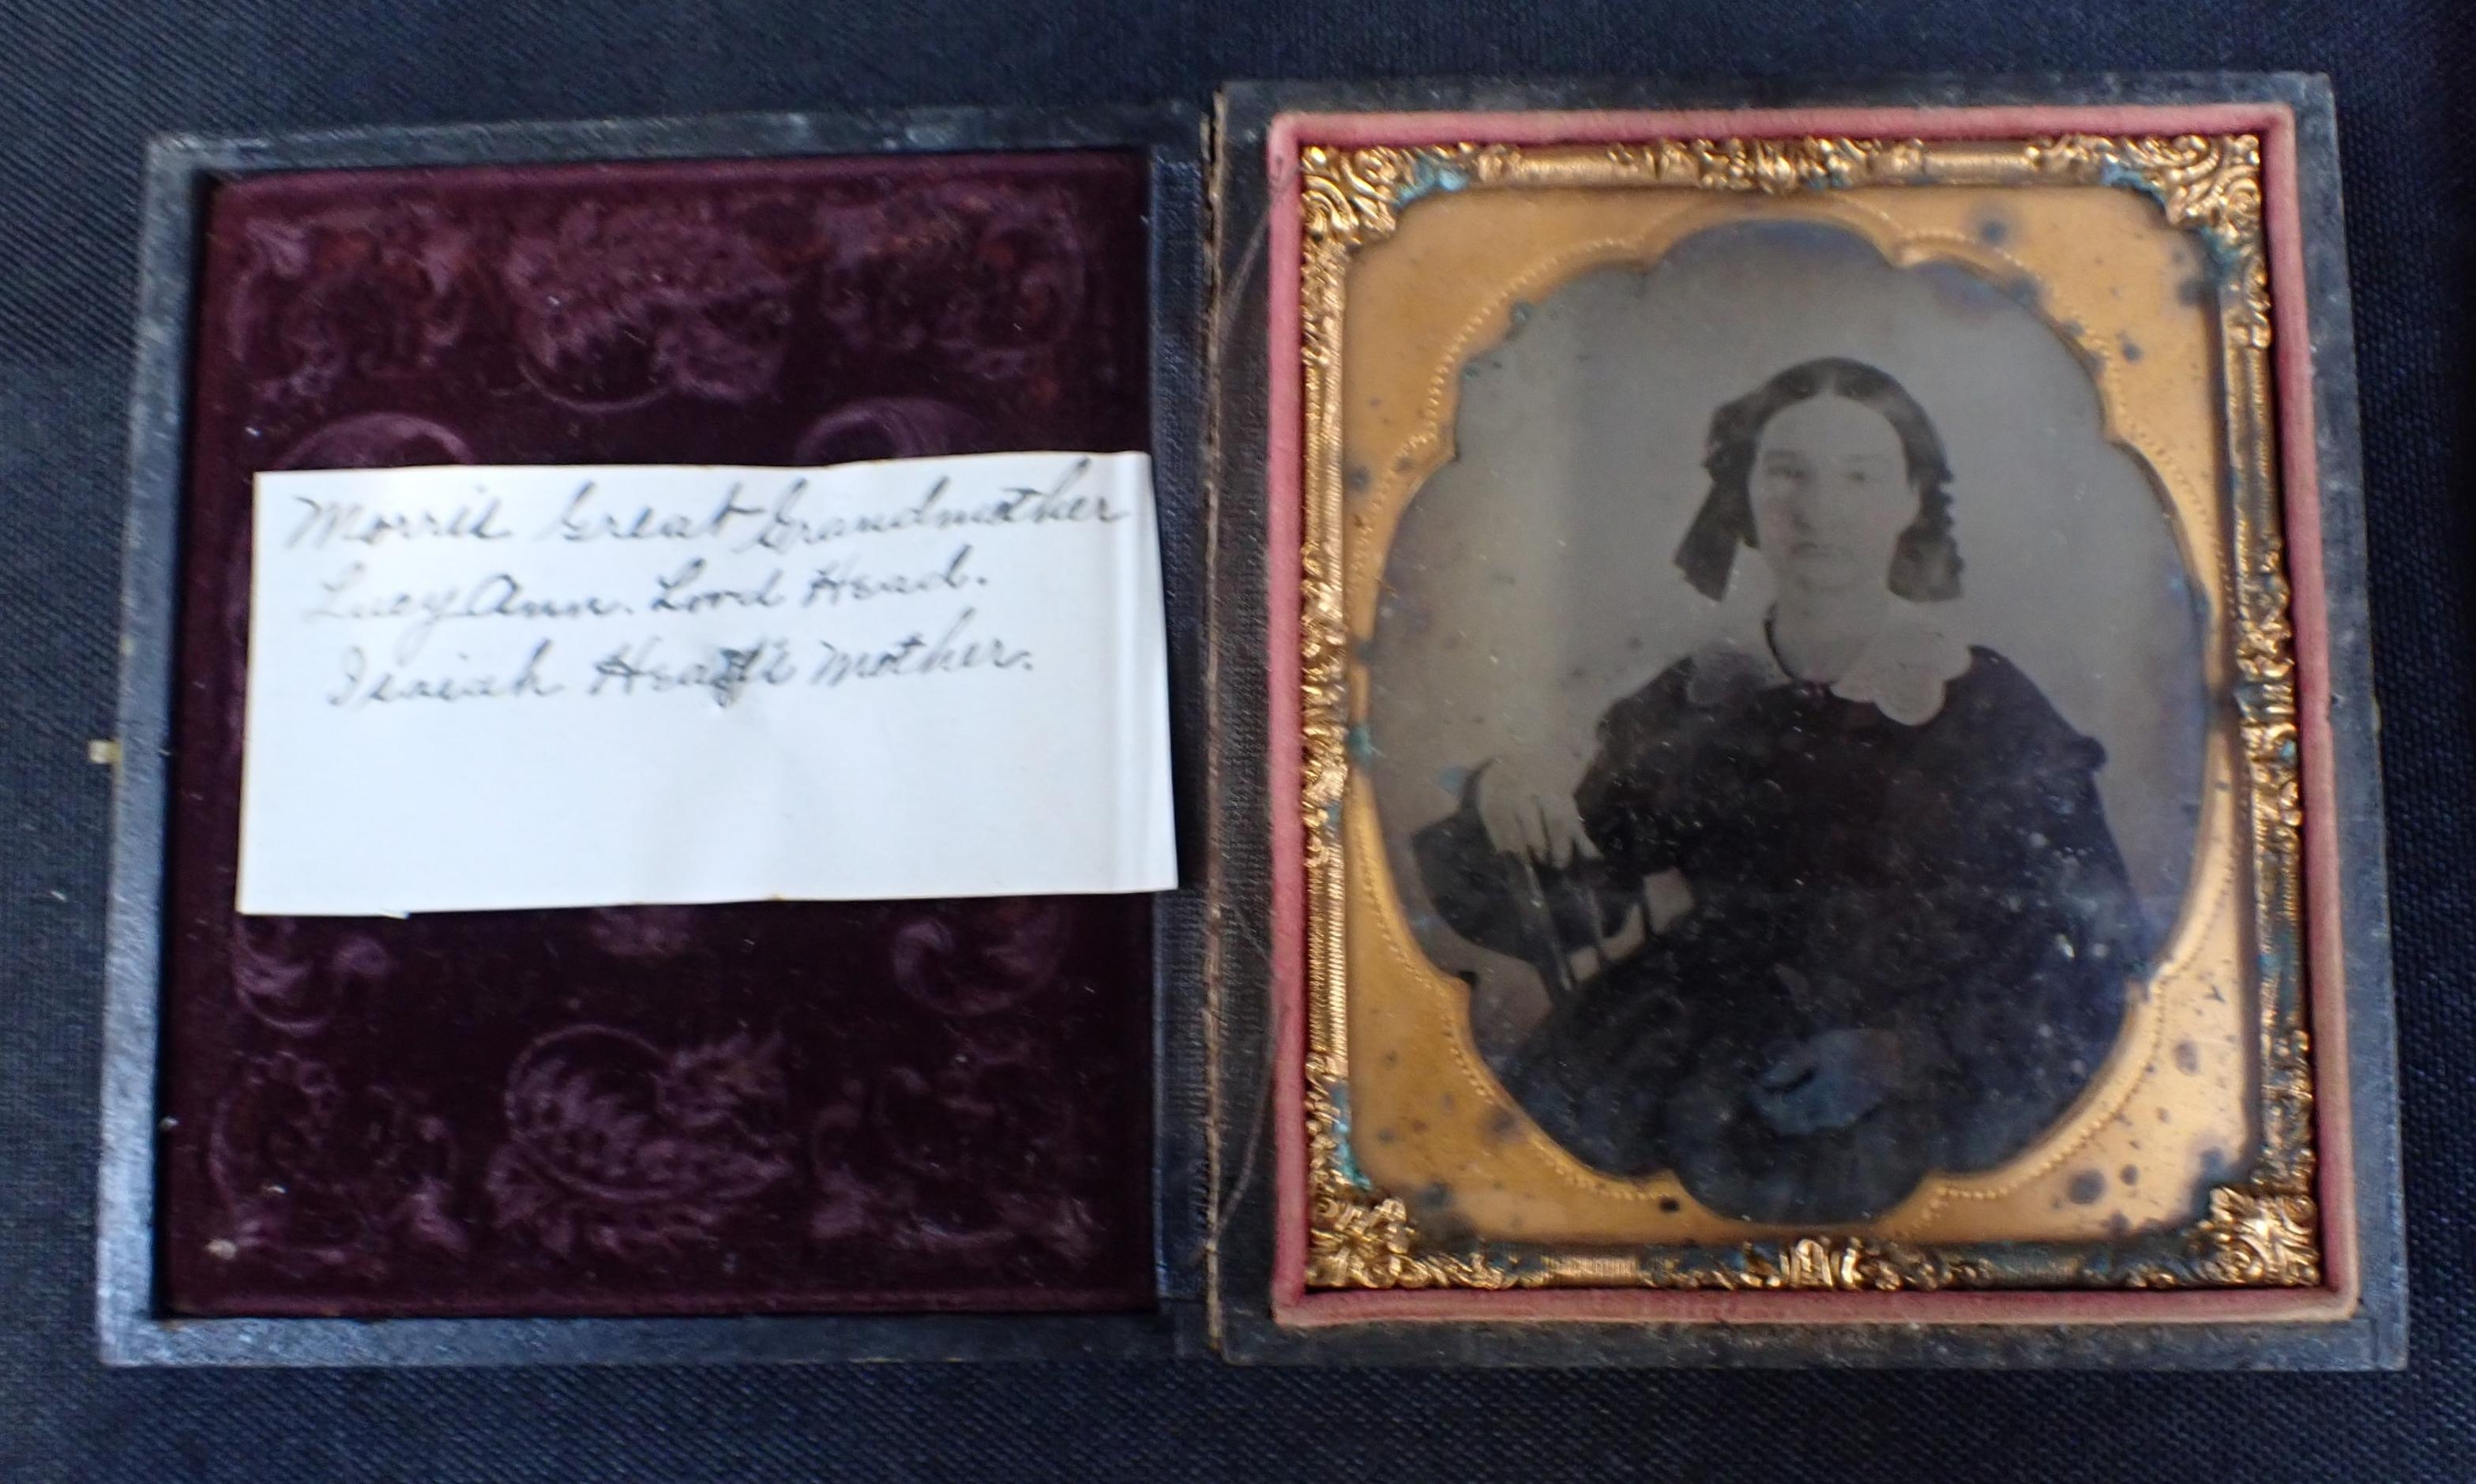 Morris Great Grandmother
Lucy Ann. Lord Head.
Isaiah Head's Mother.